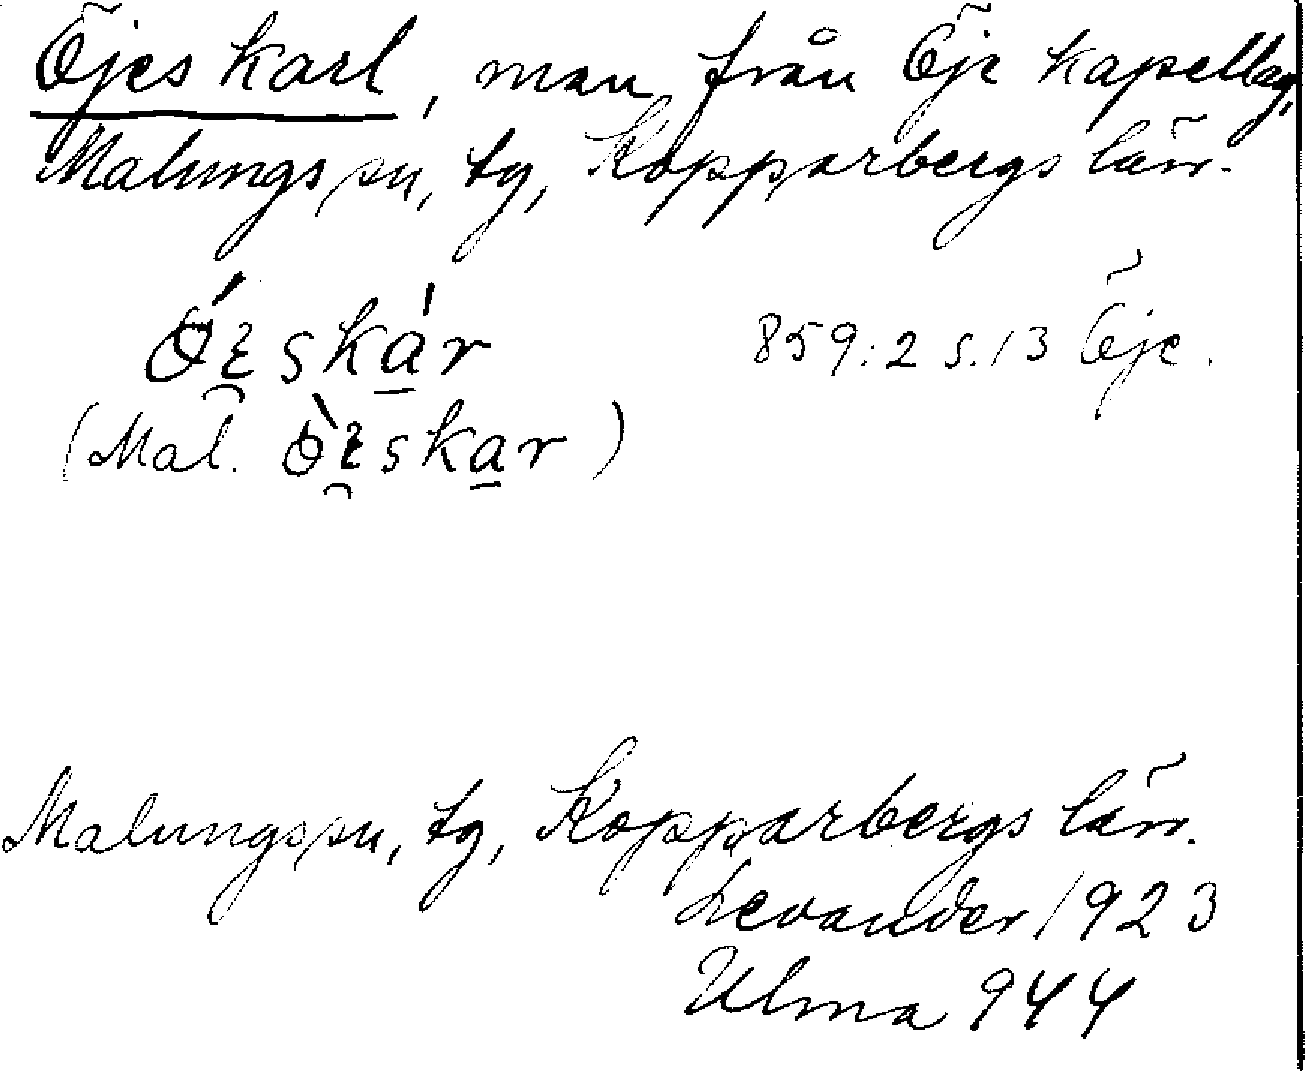 Öjes karl, man från Öje kapellag,
Malungs sn, tg, Kopparbergs län.
859:2 s. 13 Öje.
(Mal.            )
Malungs sn, tg, Kopparbergs län.
Levander 1923
Ulma 944